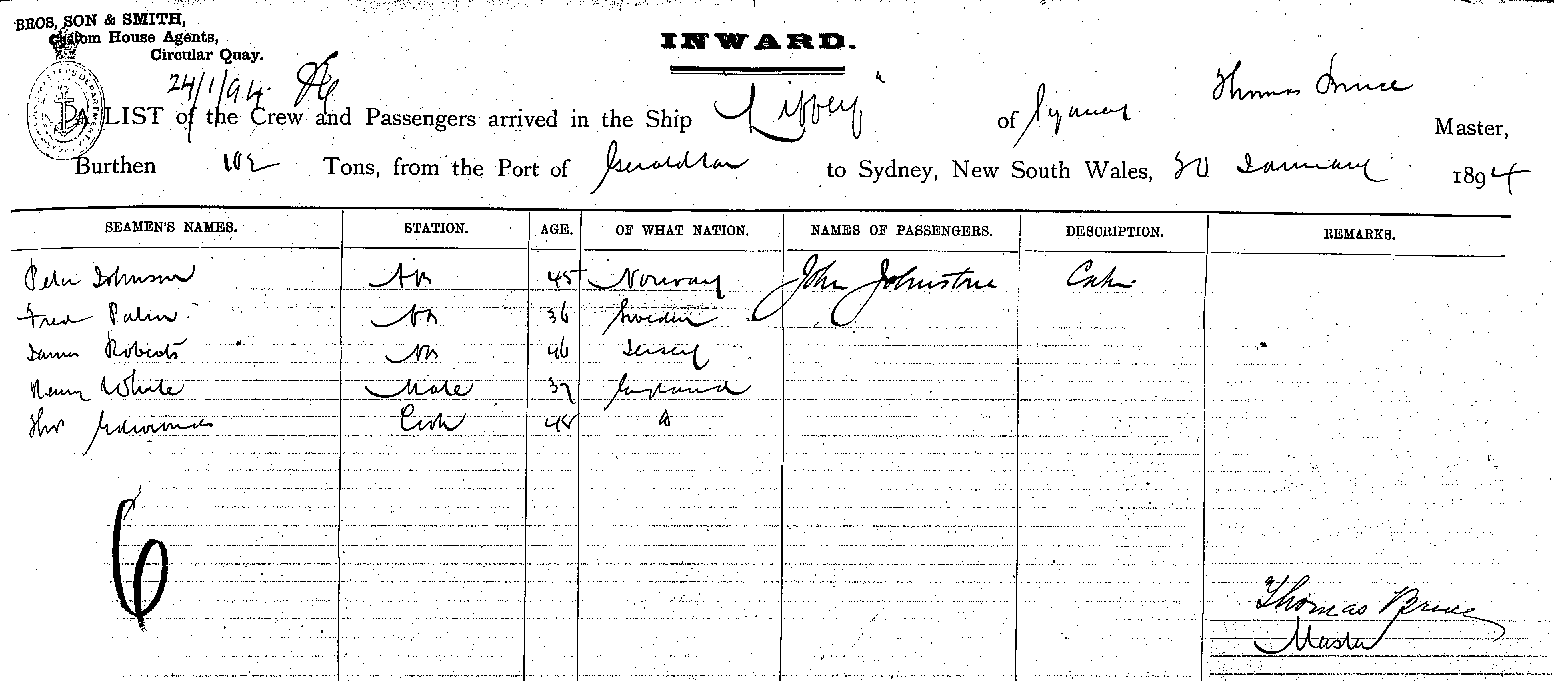 BROS, SON & SMITH,
Custom House Agents,
Circular Quay.
INWARD.
24/1/94
A LIST of the Crew and Passengers arrived in the Ship "Liffey" of Sydney Thomas Bruce Master,
Burthen Tons, from the Port of Geraldton to Sydney, New South Wales, 20 January 1894
SEAMEN'S NAMES. STATION. AGE. OF WHAT NATION. NAMES OF PASSENGERS. DESCRIPTION. REMARKS.
Peter Johnson AB 45 Norway John Johnstone Cabin
Fred Palin AB 36 Sweden
James Roberts AB 46 Jersey
Henry White Mate 37 England
Thos Edwards Cook 48
6
Thomas Bruce
Master